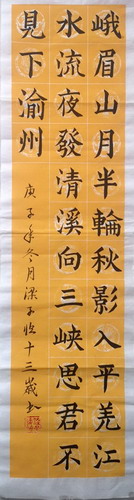 峨眉山月半輪秋影入平羌江
水流夜發清溪向三峽思君不
見下渝州
庚子年冬月梁子恒十三歲书